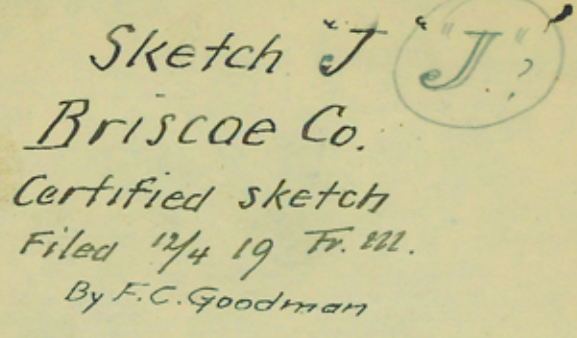 Sketch "J" "J"?
Briscoe Co.
Certified sketch
Filed 12/4 19 Fr. M.
By F.C. Goodman